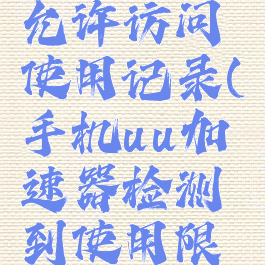 允许访问
使用记录(
手机uu加
速器检测
到使用限